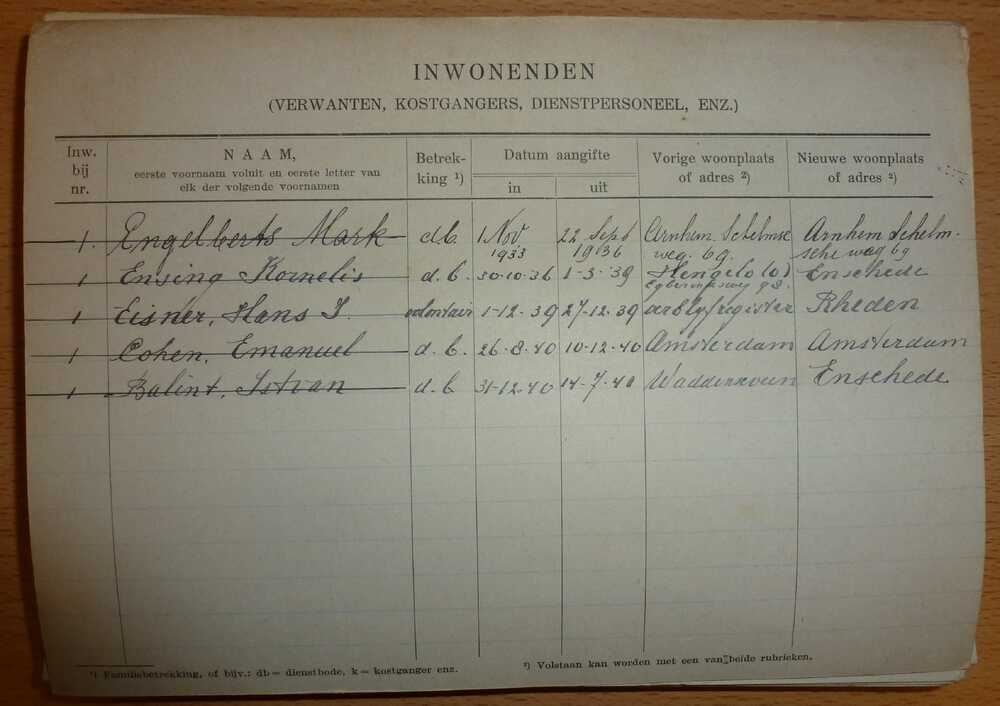 INWONENDEN
(VERWANTEN, KOSTGANGERS, DIENSTPERSONEEL, ENZ.)
Inw. bij nr.
NAAM,
eerste voornaam voluit en eerste letter van elk der volgende voornamen
Betrek-king ¹)
Datum aangifte
in
uit
Vorige woonplaats of adres ²)
Nieuwe woonplaats of adres ²)
1. Engelberts Mark d.b. 1 Nov 1933 22 Sept 1936 Arnhem Schelmse weg. 69. Arnhem Schelm-sche weg 69
1 Ensing Kornelis d.b. 30-10-36 1-3-39 Hengelo (o) 98. Enschede
1 Eisner, Hans J. volontair 1-12-39 27-12-39 verblyfregister Rheden
1 Cohen, Emanuel d.b. 26-8-40 10-12-40 Amsterdam Amsterdam
1 Balint, Istvan d.b 31-12-40 14-7-41 Enschede
¹) Familiebetrekking, of bijv.: db = dienstbode, k = kostganger enz.
²) Volstaan kan worden met een van beide rubrieken.